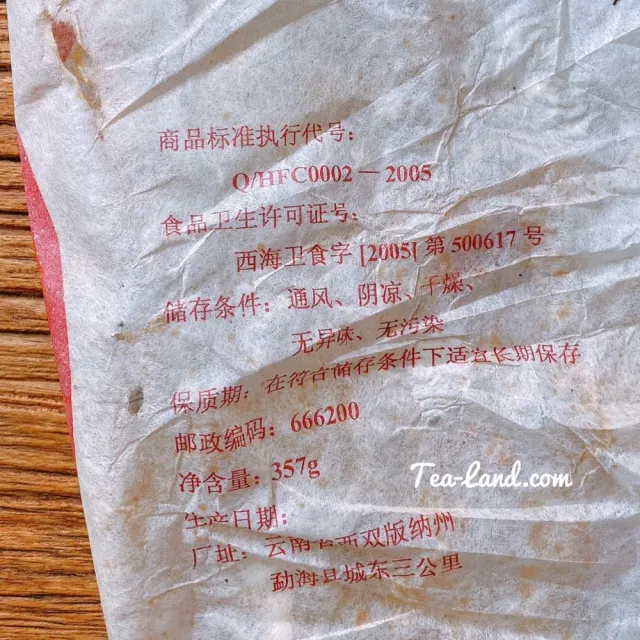 商品标准执行代号：
Q/HFC0002—2005
食品卫生许可证号：
西海卫食字 [2005[ 第 500617 号
储存条件：通风、阴凉、干燥、
无异味、无污染
保质期：在符合储存条件下适宜长期保存
邮政编码：666200
净含量：357g
生产日期：
厂址：云南省西双版纳州
勐海县城东三公里
Tea-Land.com